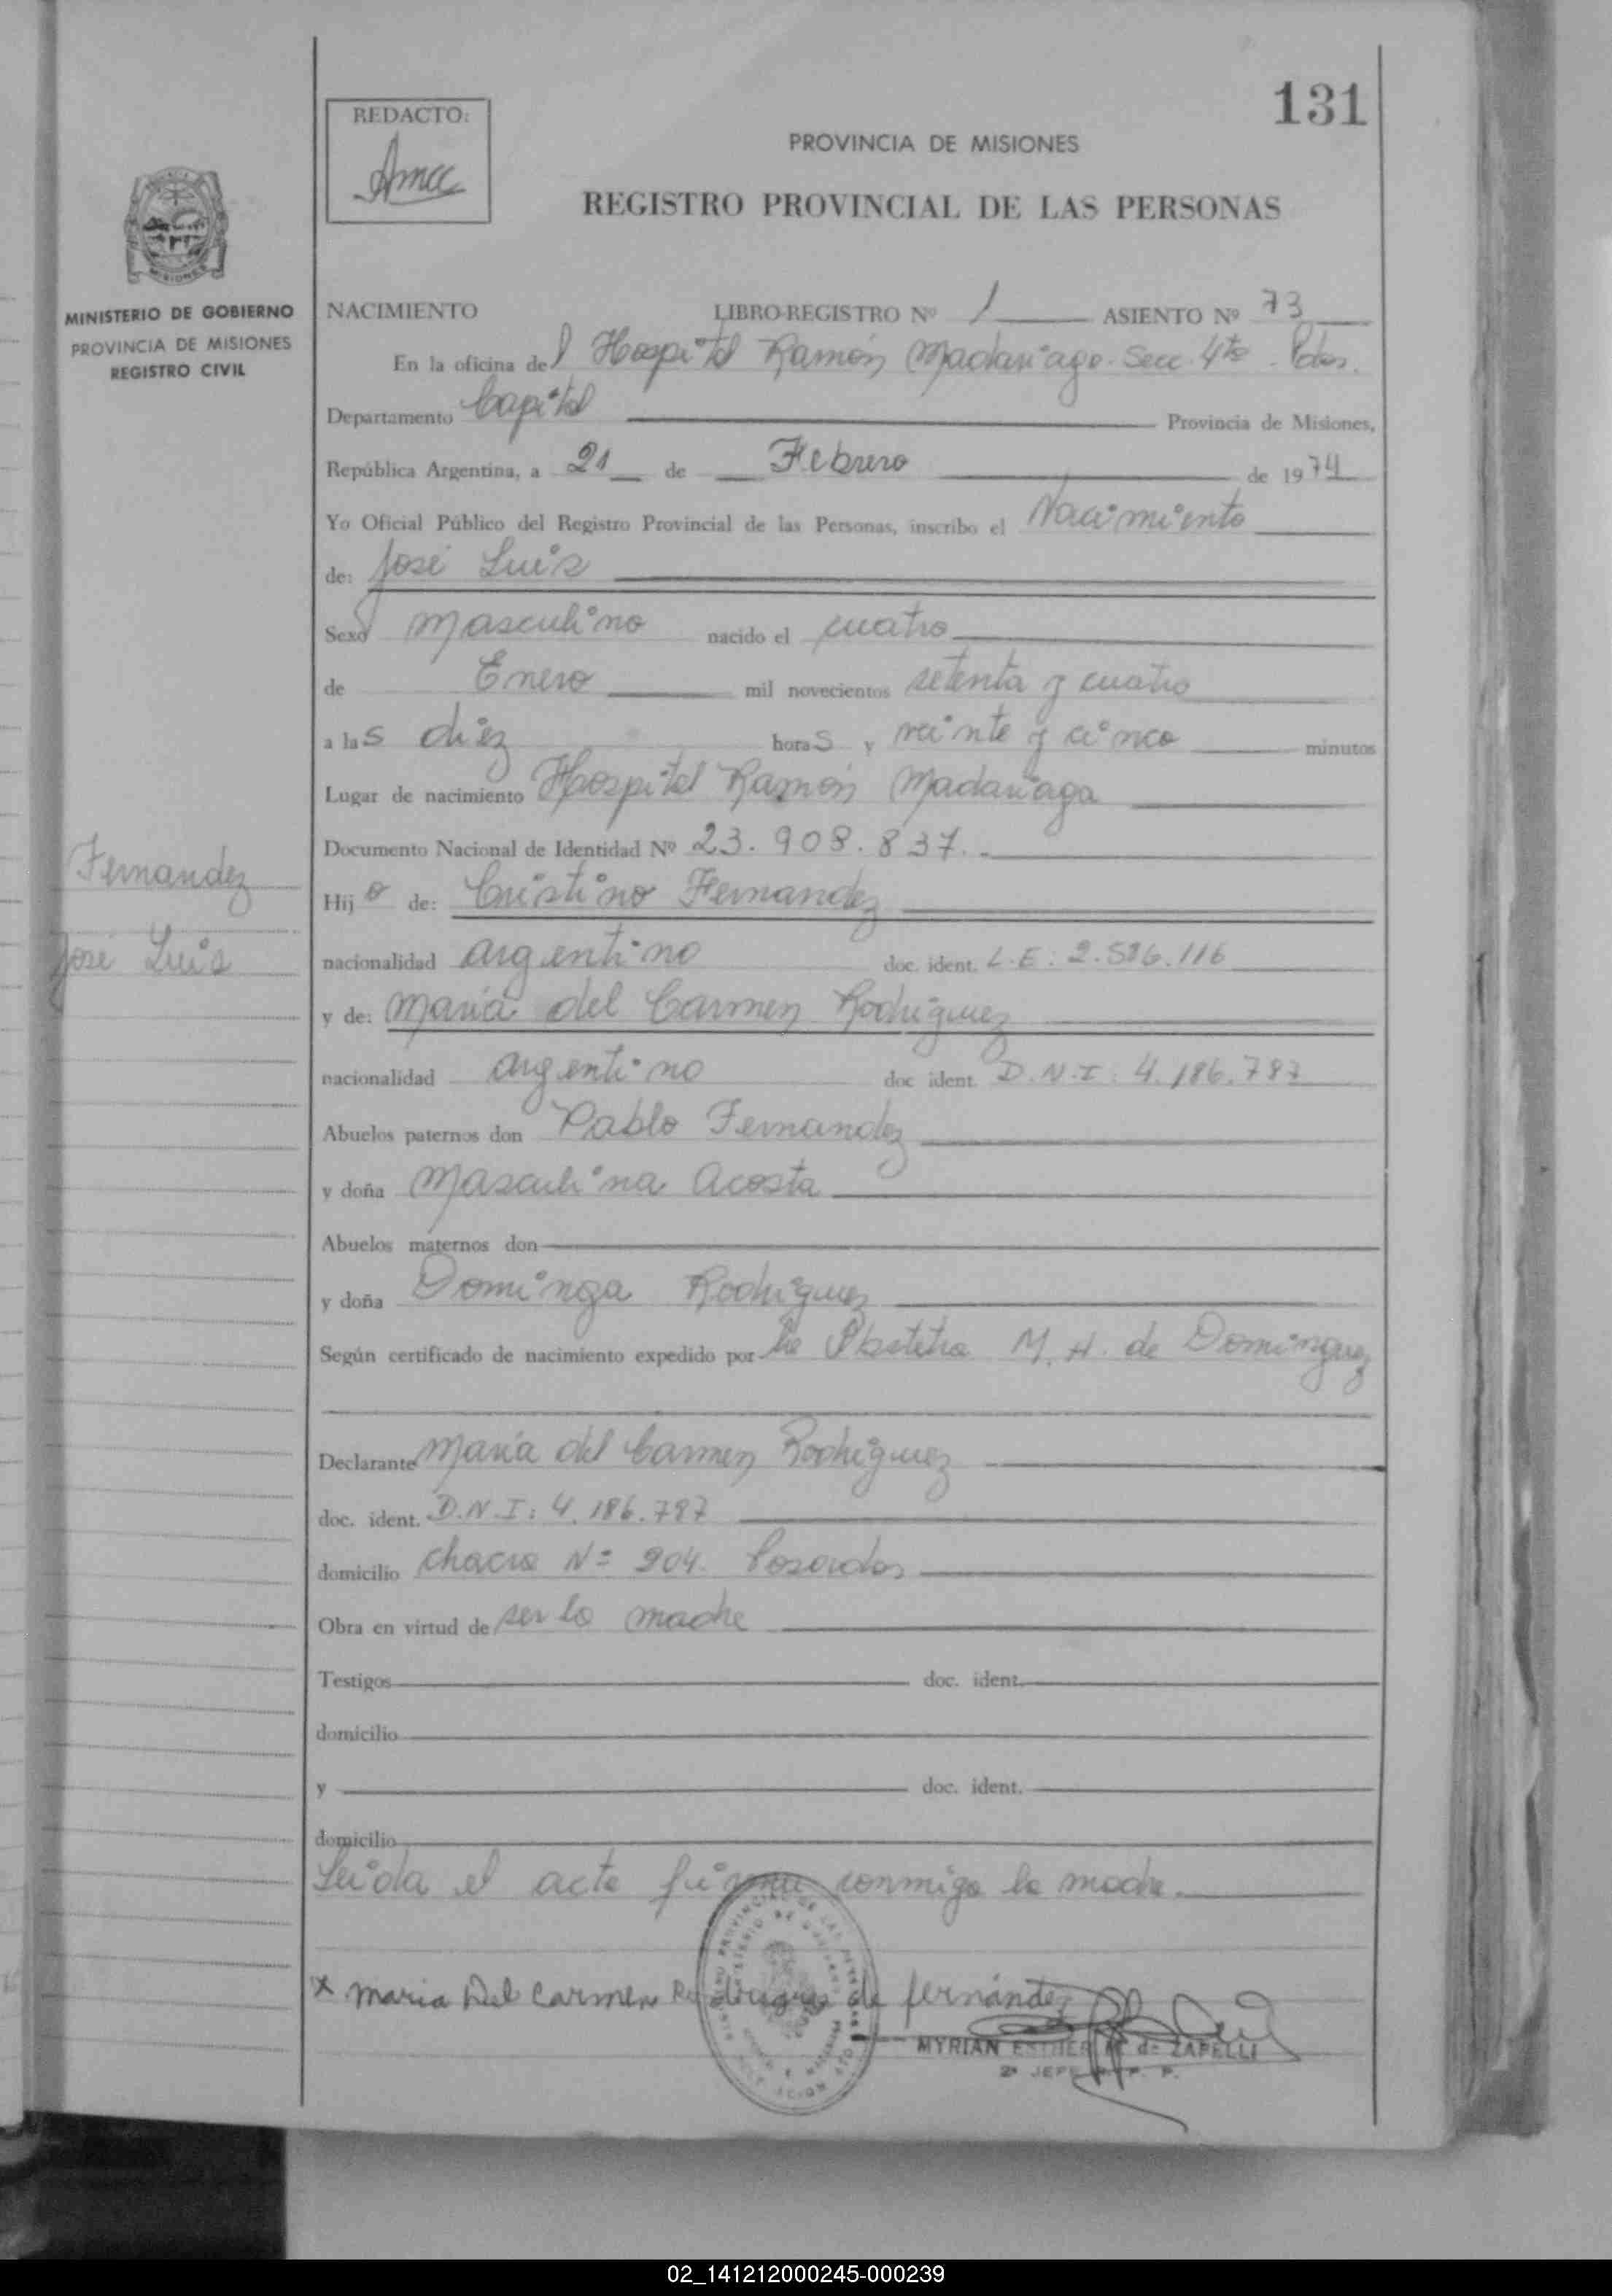 131
REDACTO:
PROVINCIA DE MISIONES
REGISTRO PROVINCIAL DE LAS PERSONAS
MISIONES
MINISTERIO DE GOBIERNO
PROVINCIA DE MISIONES
REGISTRO CIVIL
NACIMIENTO LIBRO-REGISTRO Nº 1 ASIENTO Nº 73
En la oficina del Hospital Ramón Madariaga. Secc. 4ta. Pdas.
Departamento Capital Provincia de Misiones,
República Argentina, a 21 de Febrero de 1974
Yo Oficial Público del Registro Provincial de las Personas, inscribo el Nacimiento
de: José Luis
Sexo masculino nacido el cuatro
de Enero mil novecientos setenta y cuatro
a las diez horas y veinte y cinco minutos
Lugar de nacimiento Hospital Ramón Madariaga
Documento Nacional de Identidad Nº 23.908.837.-
Fernandez
José Luis
Hijo de: Cristino Fernandez
nacionalidad argentino doc. ident. L.E: 2.586.116
y de: María del Carmen Rodriguez
nacionalidad argentino doc ident. D.N.I: 4.186.787
Abuelos paternos don Pablo Fernandez
y doña Masculina Acosta
Abuelos maternos don
y doña Dominga Rodriguez
Según certificado de nacimiento expedido por la Obstetra M. H. de Dominguez
Declarante María del Carmen Rodriguez
doc. ident. D.N.I: 4.186.787
domicilio chacra Nº 204. Posadas
Obra en virtud de ser la madre
Testigos doc. ident.
domicilio
y doc. ident.
domicilio
Leida el acta firma conmigo la madre.
x Maria Del Carmen Rodriguez de fernández
MYRIAN ESTHER de ZAPELLI
2º JEFE R. P. P.
02_141212000245-000239